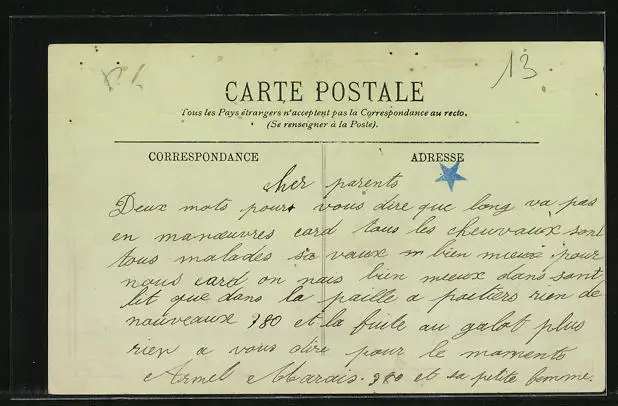 13
CARTE POSTALE
Tous les Pays étrangers n'acceptent pas la Correspondance au recto.
(Se renseigner à la Poste).
CORRESPONDANCE
ADRESSE
cher parents
Deux mots pour vous dire que long va pas
en manœuvres card tous les cheuvaux sont
tous malades sa vaux bien mieux pour
nous card on nais bien mieux dans sont
lit que dans la paille a poitiers rien de
nouveaux 980 et la fuite au galot plus
rien a vous dire pour le moments
Armel Marais. 980 et sa petite femme.